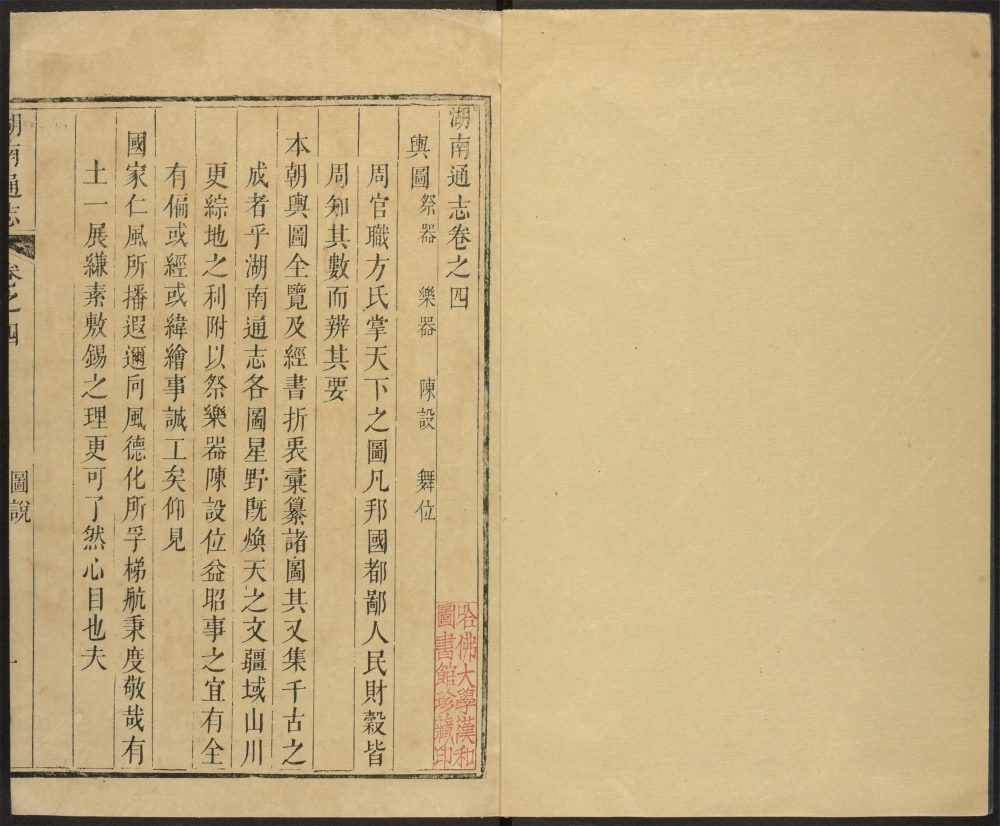 湖南通志卷之四
輿圖 祭器 樂器 陳設 舞位
周官職方氏掌天下之圖凡邦國都鄙人民財穀皆
周知其數而辨其要
本朝輿圖全覽及經書折衷彙纂諸圖其又集千古之
成者乎湖南通志各圖星野既煥天之文疆域山川
更綜地之利附以祭樂器陳設位益昭事之宜有全
有偏或經或緯繪事誠工矣仰見
國家仁風所播遐邇向風德化所孚梯航秉度敬哉有
土一展縑素敷錫之理更可了然心目也夫
湖南通志 卷之四 圖說 一
哈佛大學漢和
圖書館珍藏印